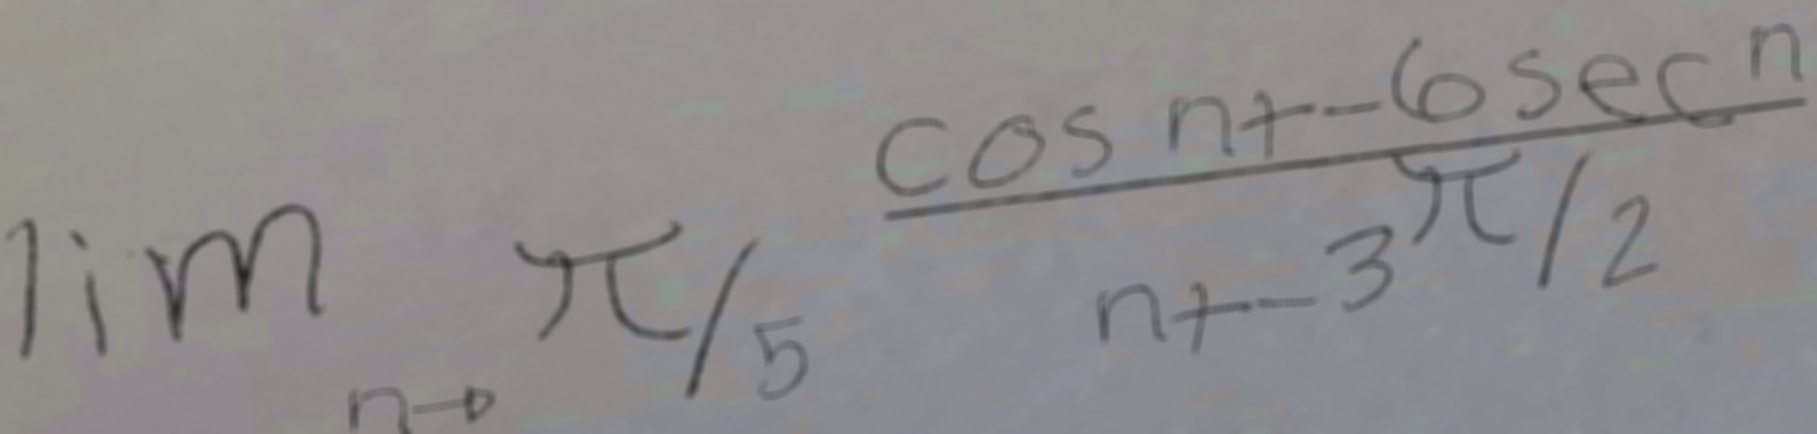 \lim_{n \to \pi/5} \frac{\cos n + -6 \sec n}{n + -3\pi/2}